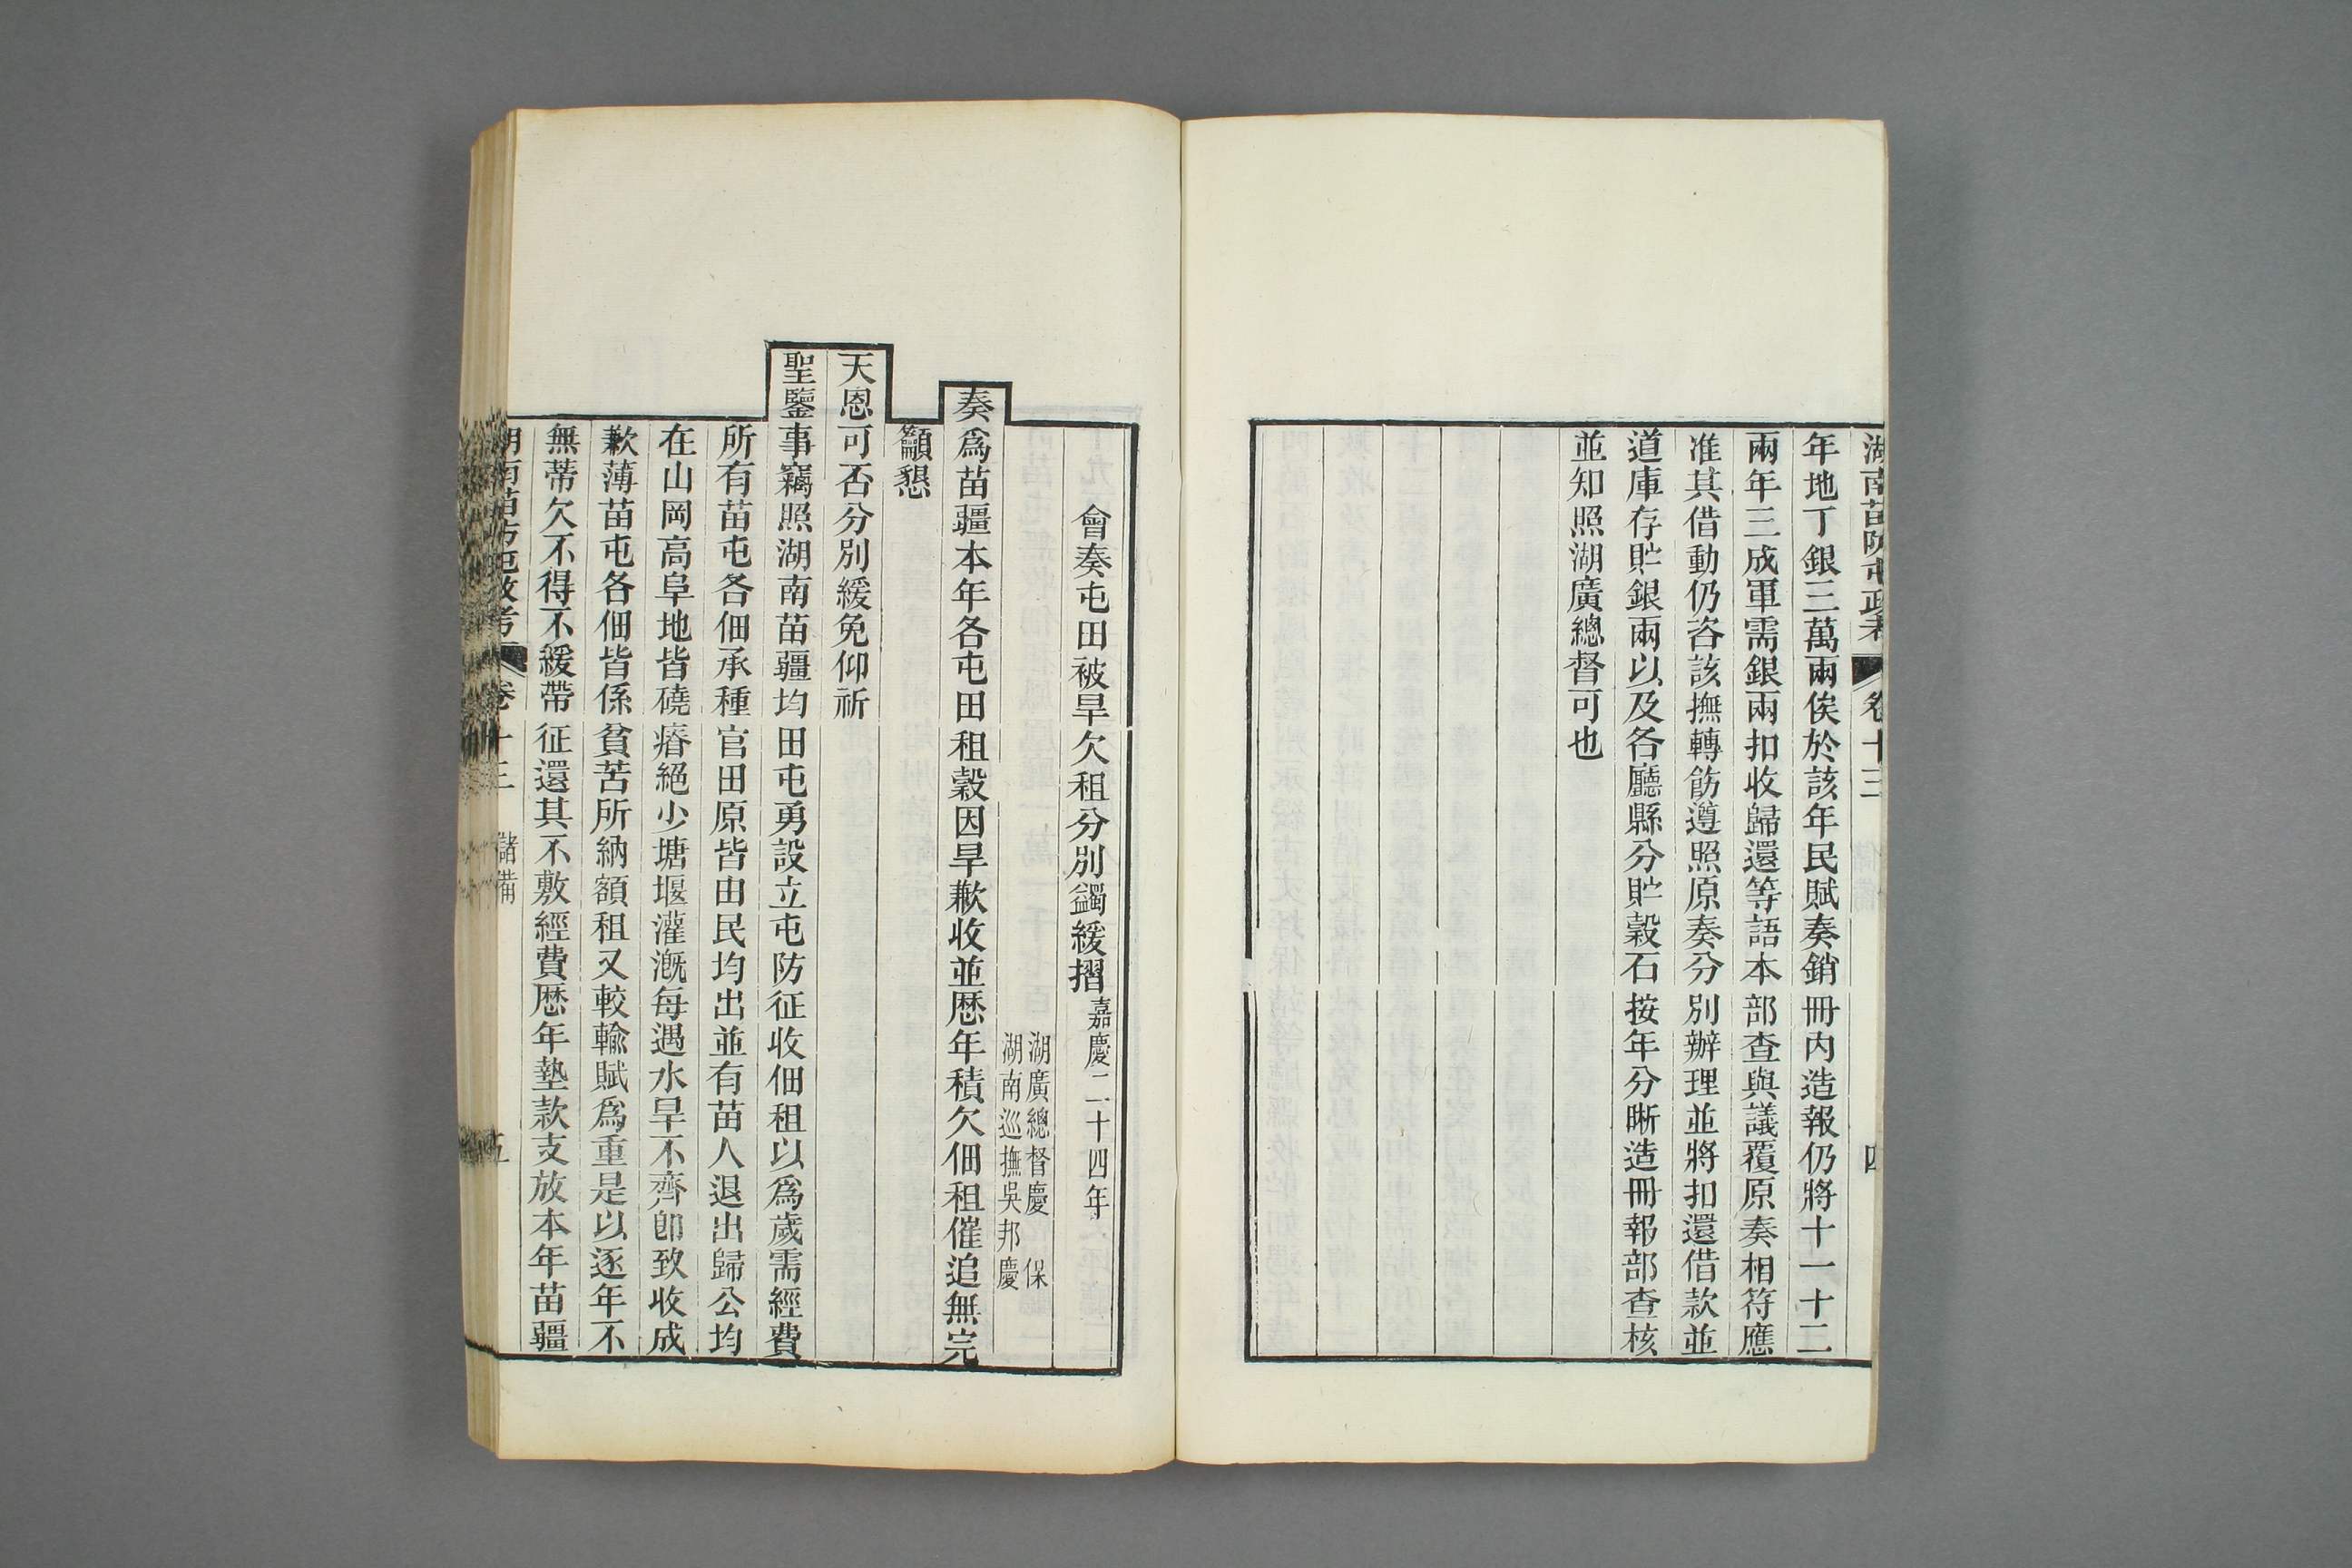 湖南苗防屯政考 卷十三 儲備 四
年地丁銀三萬兩俟於該年民賦奏銷冊內造報仍將十一十二
兩年三成軍需銀兩扣收歸還等語本部查與議覆原奏相符應
准其借動仍咨該撫轉飭遵照原奏分別辦理並將扣還借款並
道庫存貯銀兩以及各廳縣分貯穀石按年分晰造冊報部查核
並知照湖廣總督可也
會奏屯田被旱欠租分別蠲緩摺嘉慶二十四年
湖廣總督慶 保
湖南巡撫吳邦慶
奏爲苗疆本年各屯田租穀因旱歉收並歷年積欠佃租催追無完
籲懇
天恩可否分別緩免仰祈
聖鑒事竊照湖南苗疆均田屯勇設立屯防征收佃租以爲歲需經費
所有苗屯各佃承種官田原皆由民均出並有苗人退出歸公均
在山岡高阜地皆磽瘠絕少塘堰灌溉每遇水旱不齊卽致收成
歉薄苗屯各佃皆係貧苦所納額租又較輸賦爲重是以逐年不
無蒂欠不得不緩帶征還其不敷經費歷年墊款支放本年苗疆
湖南苗防屯政考 卷十三 儲備 五